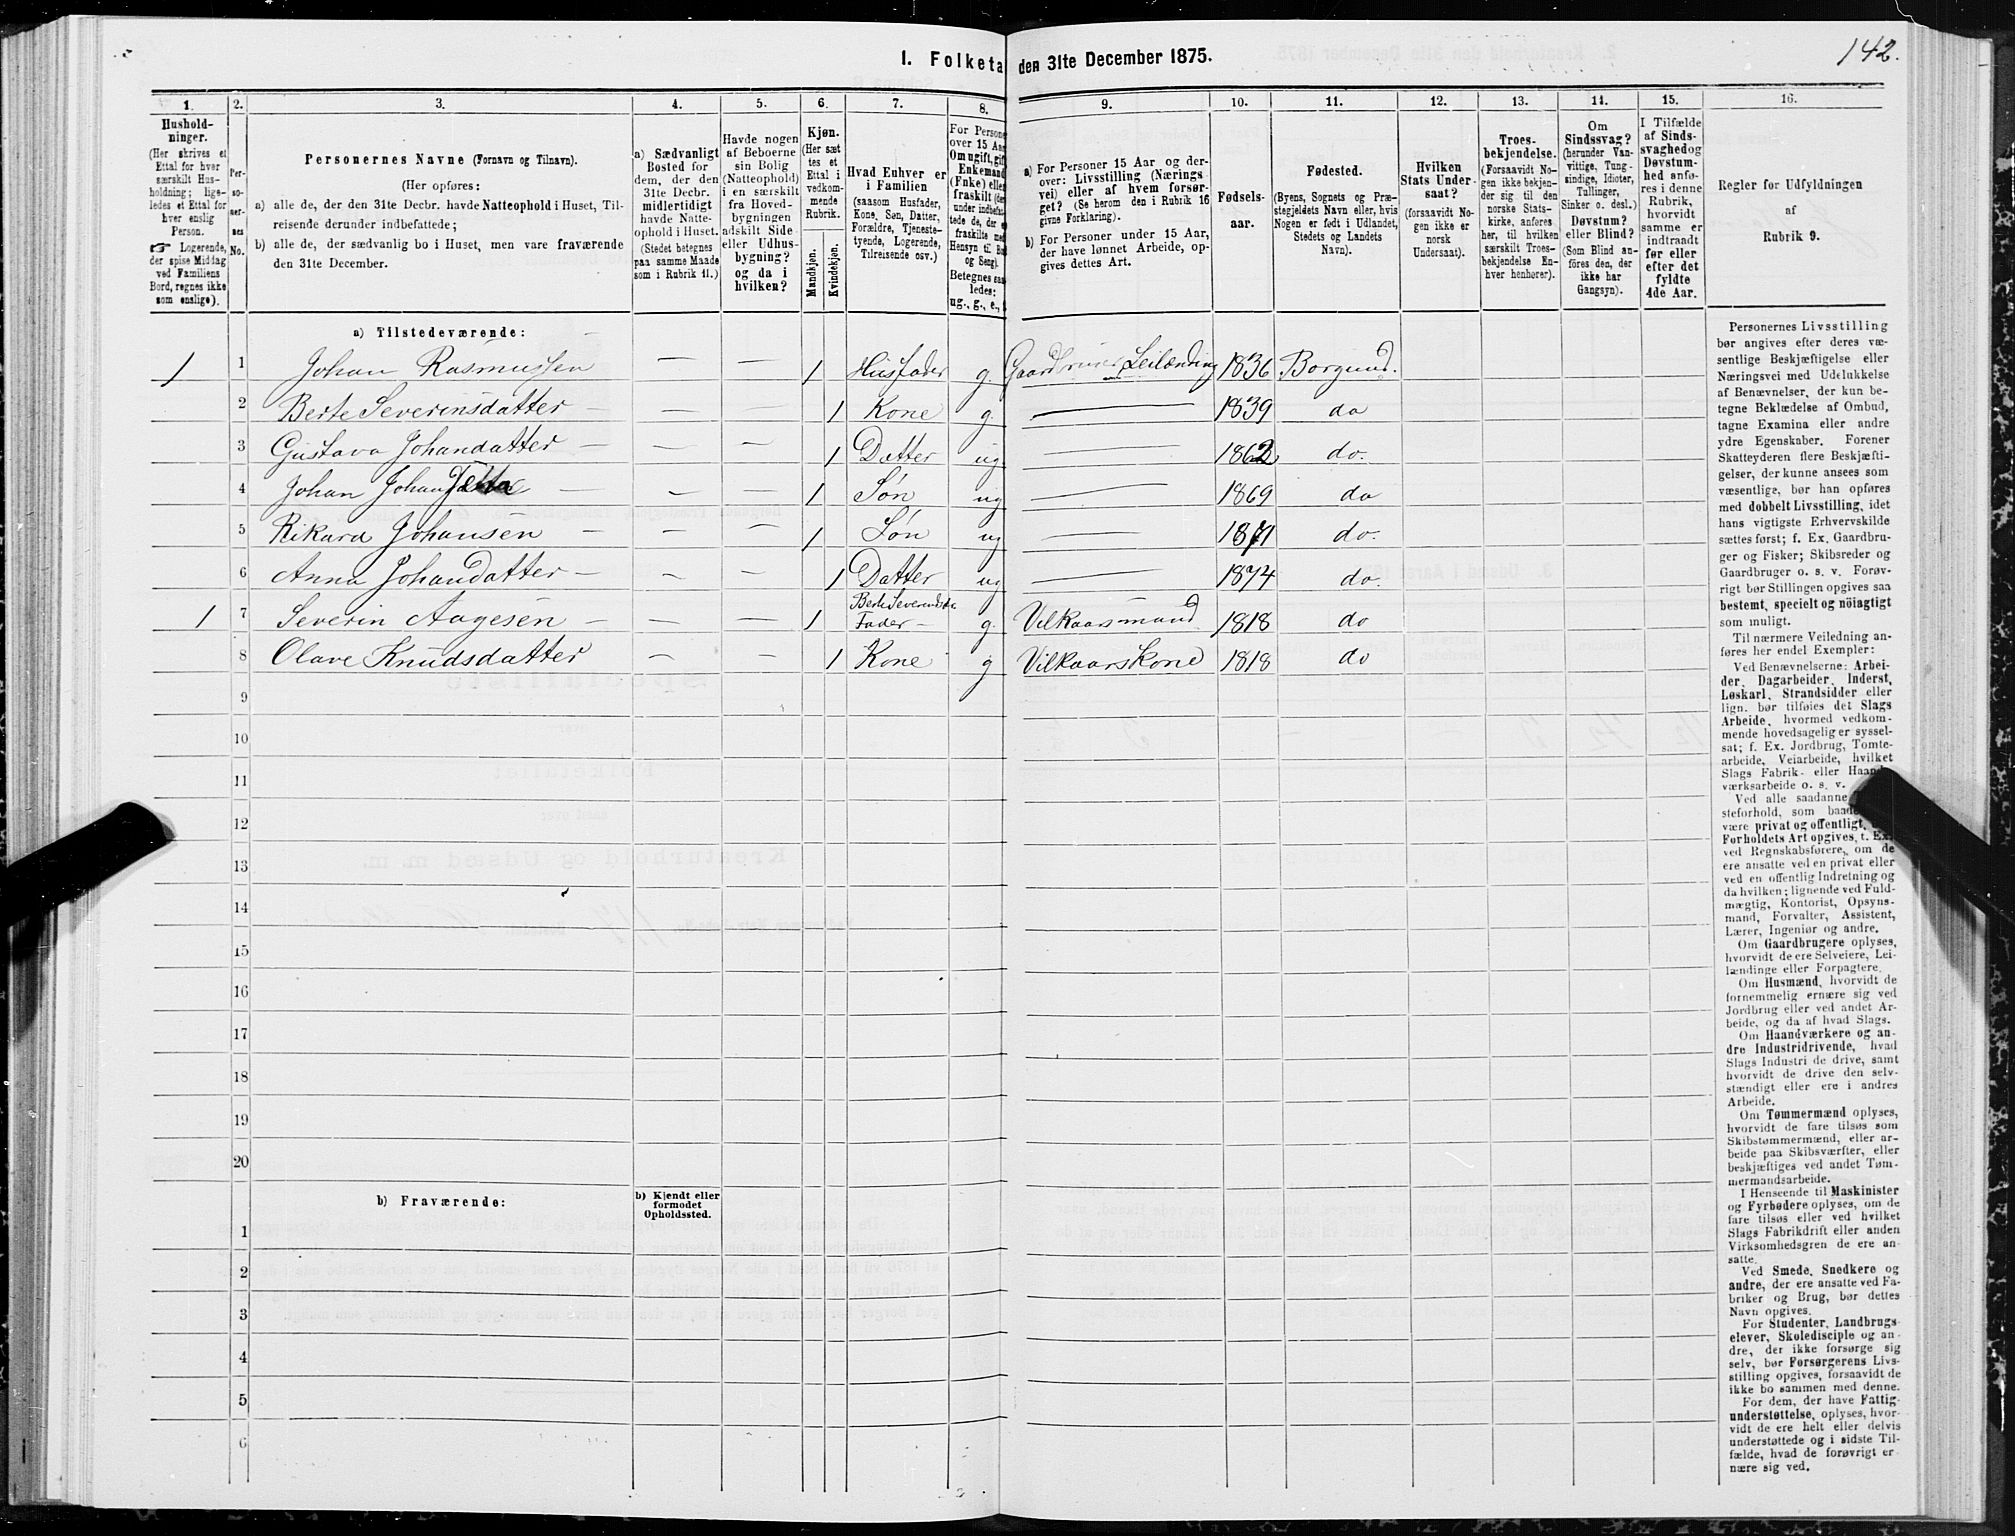 142.
I. Folketa den 31te December 1875.
1. 2. 3. 4. 5. 6. 7. 8. 9. 10. 11. 12. 13. 14. 15. 16.
Hushold-
ninger.
(Her skrives et
Ettal for hver
særskilt Hus-
holdning; lige-
ledes et Ettal for
hver enslig
Person.
☞ Logerende,
der spise Middag
ved Familiens
Bord, regnes ikke
som enslige).
Per-
so-
ner-
nes
No.
Personernes Navne (Fornavn og Tilnavn).
(Her opføres:
a) alle de, der den 31te Decbr. havde Natteophold i Huset, Til-
reisende derunder indbefattede;
b) alle de, der sædvanlig bo i Huset, men vare fraværende
den 31te December.
a) Sædvanligt
Bosted for
dem, der den
31te Decbr.
midlertidigt
havde Natte-
ophold i Huset.
(Stedet betegnes
paa samme Maade
som i Rubrik 11.)
Havde nogen
af Beboerne
sin Bolig
(Natteophold)
i en særskilt
fra Hoved-
bygningen
adskilt Side-
eller Udhus-
bygning?
og da i
hvilken?
Kjøn.
(Her sæt-
tes et
Ettal i
vedkom-
mende
Rubrik.
Mandkjøn.
Kvindekjøn.
Hvad Enhver er
i Familien
(saasom Husfader,
Kone, Søn, Datter,
Forældre, Tjeneste-
tyende, Logerende,
Tilreisende osv.)
For Persone
over 15 Aa
Om ugift, gif
Enkemand
(Enke) elle
fraskilt (de
under indbefat-
tede de, der e
fraskilte med
Hensyn til Bo
og Seng).
Betegnes saa
ledes:
ug., g., e.,
a) For Personer 15 Aar og der-
over: Livsstilling (Nærings
vei) eller af hvem forsør-
get? (Se herom den i Rubrik 16
givne Forklaring).
b) For Personer under 15 Aar,
der have lønnet Arbeide, op-
gives dettes Art.
Fødsels-
aar.
Fødested.
(Byens, Sognets og Præ-
stegjeldets Navn eller, hvis
Nogen er født i Udlandet,
Stedets og Landets
Navn).
Hvilken
Stats Under-
saat?
(forsaavidt No-
gen ikke er
norsk
Undersaat).
Troes-
bekjendelse.
(Forsaavidt No-
gen ikke bekjen-
der sig til den
norske Stats-
kirke, anføres
her, til hvilken
særskilt Troes-
bekjendelse En-
hver henhører).
Om
Sindssvag?
(herunder Van-
vittige, Tung-
sindige, Idioter,
Tullinger,
Sinker o. desl.)
Døvstum?
eller Blind?
(Som Blind an-
føres den, der
ikke har
Gangsyn).
I Tilfælde
af Sinds-
svaghed og
Døvstum-
hed anfø-
res i denne
Rubrik,
hvorvidt
samme er
indtraadt
før eller
efter det
fyldte
4de Aar.
Regler for Udfyldningen
af
Rubrik 9.
a) Tilstedeværende:
1 1 Johan Rasmussen — — 1 Husfader g. Gaardbruger Leilænding 1836 Borgund.
2 Berte Severinsdatter — — — 1 Kone g. — 1839 do
3 Gustava Johandatter — — — 1 Datter ug — 1862 do.
4 Johan Johan — — — 1 Søn ug — 1869 do
5 Rikard Johansen — — — 1 Søn ug — 1871 do.
6 Anna Johandatter — — — 1 Datter ug — 1874 do.
1 7 Severin Aagesen — — — 1 Fader — g. Vilkaarsmand 1818 do
8 Olave Knudsdatter — — 1 Kone g Vilkaarskone 1818 do
9
10
11
12
13
14
15
16
17
18
19
20
b) Fraværende:
b) Kjendt eller
formodet
Opholdssted.
1
2
3
4
5
6
Personernes Livsstilling
bør angives efter deres væ-
sentlige Beskjæftigelse eller
Næringsvei med Udelukkelse
af Benævnelser, der kun be-
tegne Beklædelse af Ombud,
tagne Examina eller andre
ydre Egenskaber. Forener
Skatteyderen flere Beskjæfti-
gelser, der kunne ansees som
væsentlige, bør han opføres
med dobbelt Livsstilling, idet
hans vigtigste Erhvervskilde
sættes først; f. Ex. Gaardbru-
ger og Fisker; Skibsreder og
Gaardbruger o. s. v. Forøv-
rigt bør Stillingen opgives saa
bestemt, specielt og nöiagtigt
som muligt.
Til nærmere Veiledning an-
føres her endel Exempler:
Ved Benævnelserne: Arbei-
der, Dagarbeider, Inderst,
Løskarl, Strandsidder eller
lign. bør tilføies det Slags
Arbeide, hvormed vedkom-
mende hovedsagelig er syssel-
sat; f. Ex. Jordbrug, Tomte-
arbeide, Veiarbeide, hvilket
Slags Fabrik- eller Haand-
værksarbeide o. s. v.
Ved alle saadanne
steforhold, som baade
være privat og offentligt,
Forholdets Art opgives, t. Ex.
ved Regnskabsførere, om de
ere ansatte ved en privat eller
ved en offentlig Indretning og
da hvilken; lignende ved Fuld-
mægtig, Kontorist, Opsyns-
mand, Forvalter, Assistent,
Lærer, Ingeniør og andre.
Om Gaardbrugere oplyses,
hvorvidt de ere Selveiere, Lei-
lændinge eller Forpagtere.
Om Husmænd, hvorvidt de
fornemmelig ernære sig ved
Jordbrug eller ved andet Ar-
beide, og da af hvad Slags.
Om Haandværkere og an-
dre Industridrivende, hvad
Slags Industri de drive, samt
hvorvidt de drive den selv-
stændigt eller ere i andres
Arbeide.
Om Tømmermænd oplyses,
hvorvidt de fare tilsøs som
Skibstømmermænd, eller ar-
beide paa Skibsværfter, eller
beskjæftiges ved andet Tøm-
mermandsarbeide.
I Henseende til Maskinister
og Fyrbødere oplyses, om de
fare tilsøs eller ved hvilket
Slags Fabrikdrift eller anden
Virksomhedsgren de ere an-
satte.
Ved Smede, Snedkere og
andre, der ere ansatte ved Fa-
briker og Brug, bør dettes
Navn opgives.
For Studenter, Landbrugs-
elever, Skoledisciple og an-
dre, der ikke forsørge sig
selv, bør Forsørgerens Livs-
stilling opgives, forsaavidt de
ikke bo sammen med denne.
For dem, der have Fattig-
understøttelse, oplyses, hvor-
vidt de ere helt eller delvis
understøttede og i sidste Til-
fælde, hvad de forøvrigt er-
nære sig ved.